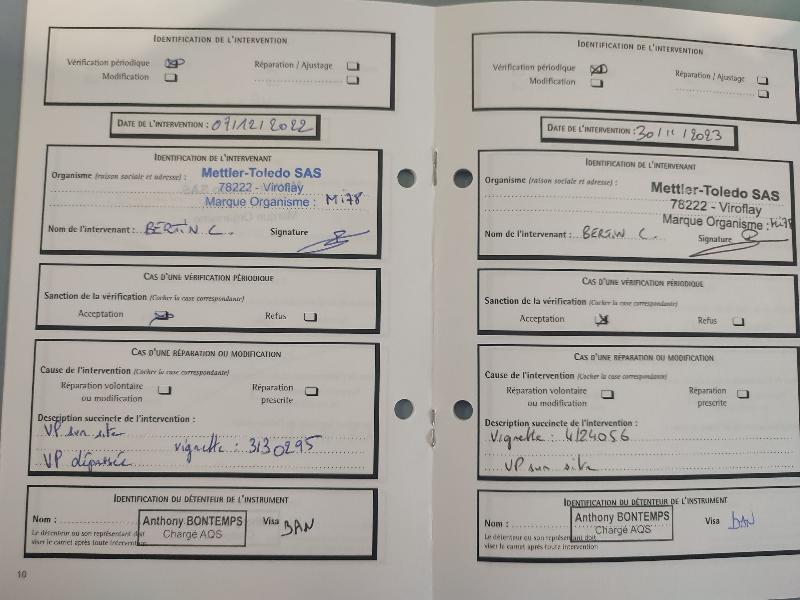 IDENTIFICATION DE L'INTERVENTION
Vérification périodique
Réparation / Ajustage
Modification
DATE DE L'INTERVENTION : 07/12/2022
IDENTIFICATION DE L'INTERVENANT
Organisme (raison sociale et adresse) : Mettler-Toledo SAS
78222 - Viroflay
Marque Organisme : Mi78
Nom de l'intervenant : BERTIN C.
Signature
CAS D'UNE VÉRIFICATION PÉRIODIQUE
Sanction de la vérification (Cocher la case correspondante)
Acceptation
Refus
CAS D'UNE RÉPARATION OU MODIFICATION
Cause de l'intervention (Cocher la case correspondante)
Réparation volontaire
ou modification
Réparation
prescrite
Description succincte de l'intervention :
VP sur site
vignette : 3130295
VP dépassée
IDENTIFICATION DU DÉTENTEUR DE L'INSTRUMENT
Nom :
Anthony BONTEMPS
Chargé AQS
Visa BAN
Le détenteur ou son représentant doit
viser le carnet après toute intervention
10
IDENTIFICATION DE L'INTERVENTION
Vérification périodique
Réparation / Ajustage
Modification
DATE DE L'INTERVENTION : 30/11/2023
IDENTIFICATION DE L'INTERVENANT
Organisme (raison sociale et adresse) :
Mettler-Toledo SAS
78222 - Viroflay
Marque Organisme : Mi78
Nom de l'intervenant : BERTIN C.
Signature
CAS D'UNE VÉRIFICATION PÉRIODIQUE
Sanction de la vérification (Cocher la case correspondante)
Acceptation
Refus
CAS D'UNE RÉPARATION OU MODIFICATION
Cause de l'intervention (Cocher la case correspondante)
Réparation volontaire
ou modification
Réparation
prescrite
Description succincte de l'intervention :
Vignette : 4124056
VP sur site
IDENTIFICATION DU DÉTENTEUR DE L'INSTRUMENT
Nom :
Anthony BONTEMPS
Chargé AQS
Visa BAN
Le détenteur ou son représentant doit
viser le carnet après toute intervention